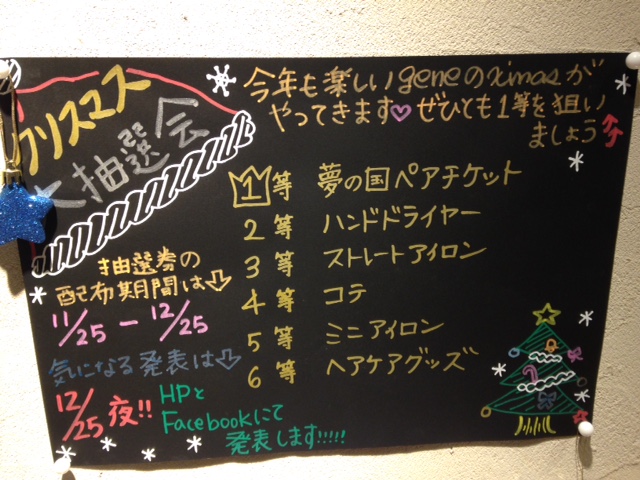 クリスマス
大抽選会
今年も楽しいgeneのximasが
やってきます♡ぜひとも1等を狙い
ましょう
1等 夢の国ペアチケット
2等 ハンドドライヤー
3等 ストレートアイロン
4等 コテ
5等 ミニアイロン
6等 ヘアケアグッズ
抽選券の
配布期間は⇩
11/25-12/25
気になる発表は⇩
12/25夜!!
HPと
Facebookにて
発表します!!!!!